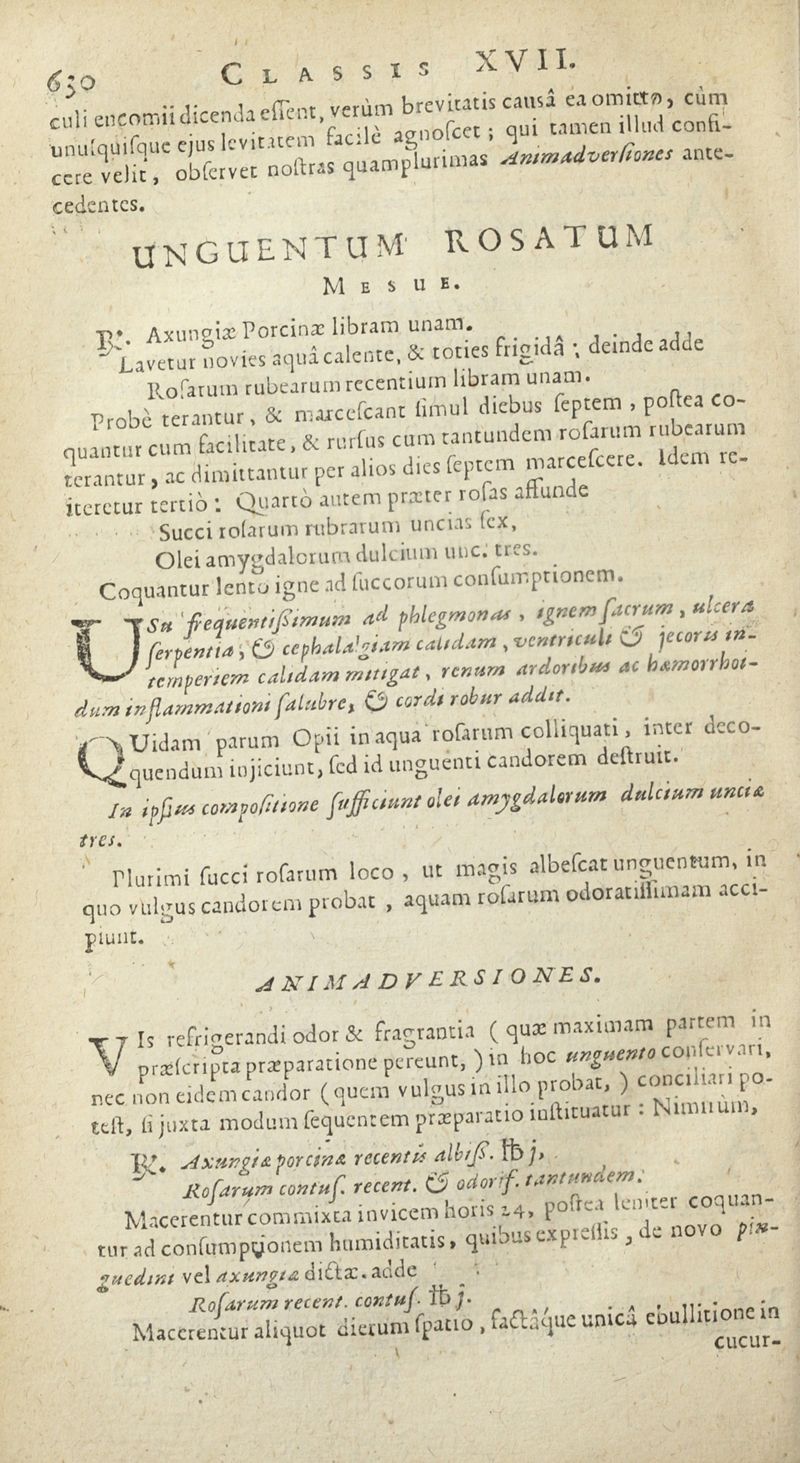 650 CLASSIS XVII.
culi encomii dicenda eſſent, verùm brevitatis causâ ea omitto, cùm
unuſquiſque ejus levitatem facilè agnoſcet; qui tamen illud confi-
cere velit, obſervet noſtras quamplurimas Animadverſiones ante-
cedentes.
UNGUENTUM ROSATUM
MESUE.
℞. Axungiæ Porcinæ libram unam.
Lavetur novies aquâ calente, & toties frigidâ; deinde adde
Roſarum rubearum recentium libram unam.
Probè terantur, & marceſcant ſimul diebus ſeptem, poſtea co-
quantur cum facilitate, & rurſus cum tantundem roſarum rubearum
terantur, ac dimittantur per alios dies ſeptem marceſcere. Idem re-
iteretur tertiò: Quartò autem præter roſas affunde
Succi roſarum rubrarum uncias ſex,
Olei amygdalorum dulcium unc. tres.
Coquantur lento igne ad ſuccorum conſumptionem.
USu frequentiſſimum ad phlegmonas, ignem ſacrum, ulcera
ſerpentia, & cephalalgiam calidam, ventriculi & jecoris in-
temperiem calidam mitigat, renum ardoribus ac hæmorrhoi-
dum inflammationi ſalubre, & cordi robur addit.
QUidam parum Opii in aqua roſarum colliquati, inter deco-
quendum injiciunt, ſed id unguenti candorem deſtruit.
In ipſius compoſitione ſufficiunt olei amygdalorum dulcium unciæ
tres.
Plurimi ſucci roſarum loco, ut magis albeſcat unguentum, in
quo vulgus candorem probat, aquam roſarum odoratiſſimam acci-
piunt.
ANIMADVERSIONES.
VIs refrigerandi odor & fragrantia (quæ maximam partem in
præſcripta præparatione pereunt,) in hoc unguento conſervari,
nec non eidem candor (quem vulgus in illo probat,) conciliari po-
teſt, ſi juxta modum ſequentem præparatio inſtituatur: Nimium,
℞. Axungiæ porcinæ recentis albiſſ. ℔ j.
Roſarum contuſ. recent. & odorif. tantundem.
Macerentur commixta invicem horis 24, poſtea leniter coquan-
tur ad conſumptionem humiditatis, quibus expreſſis, de novo pin-
guedini vel axungiæ dictæ. adde
Roſarum recent. contuſ. ℔ j.
Macerentur aliquot dierum ſpatio, factâque unicâ ebullitione in
cucur-